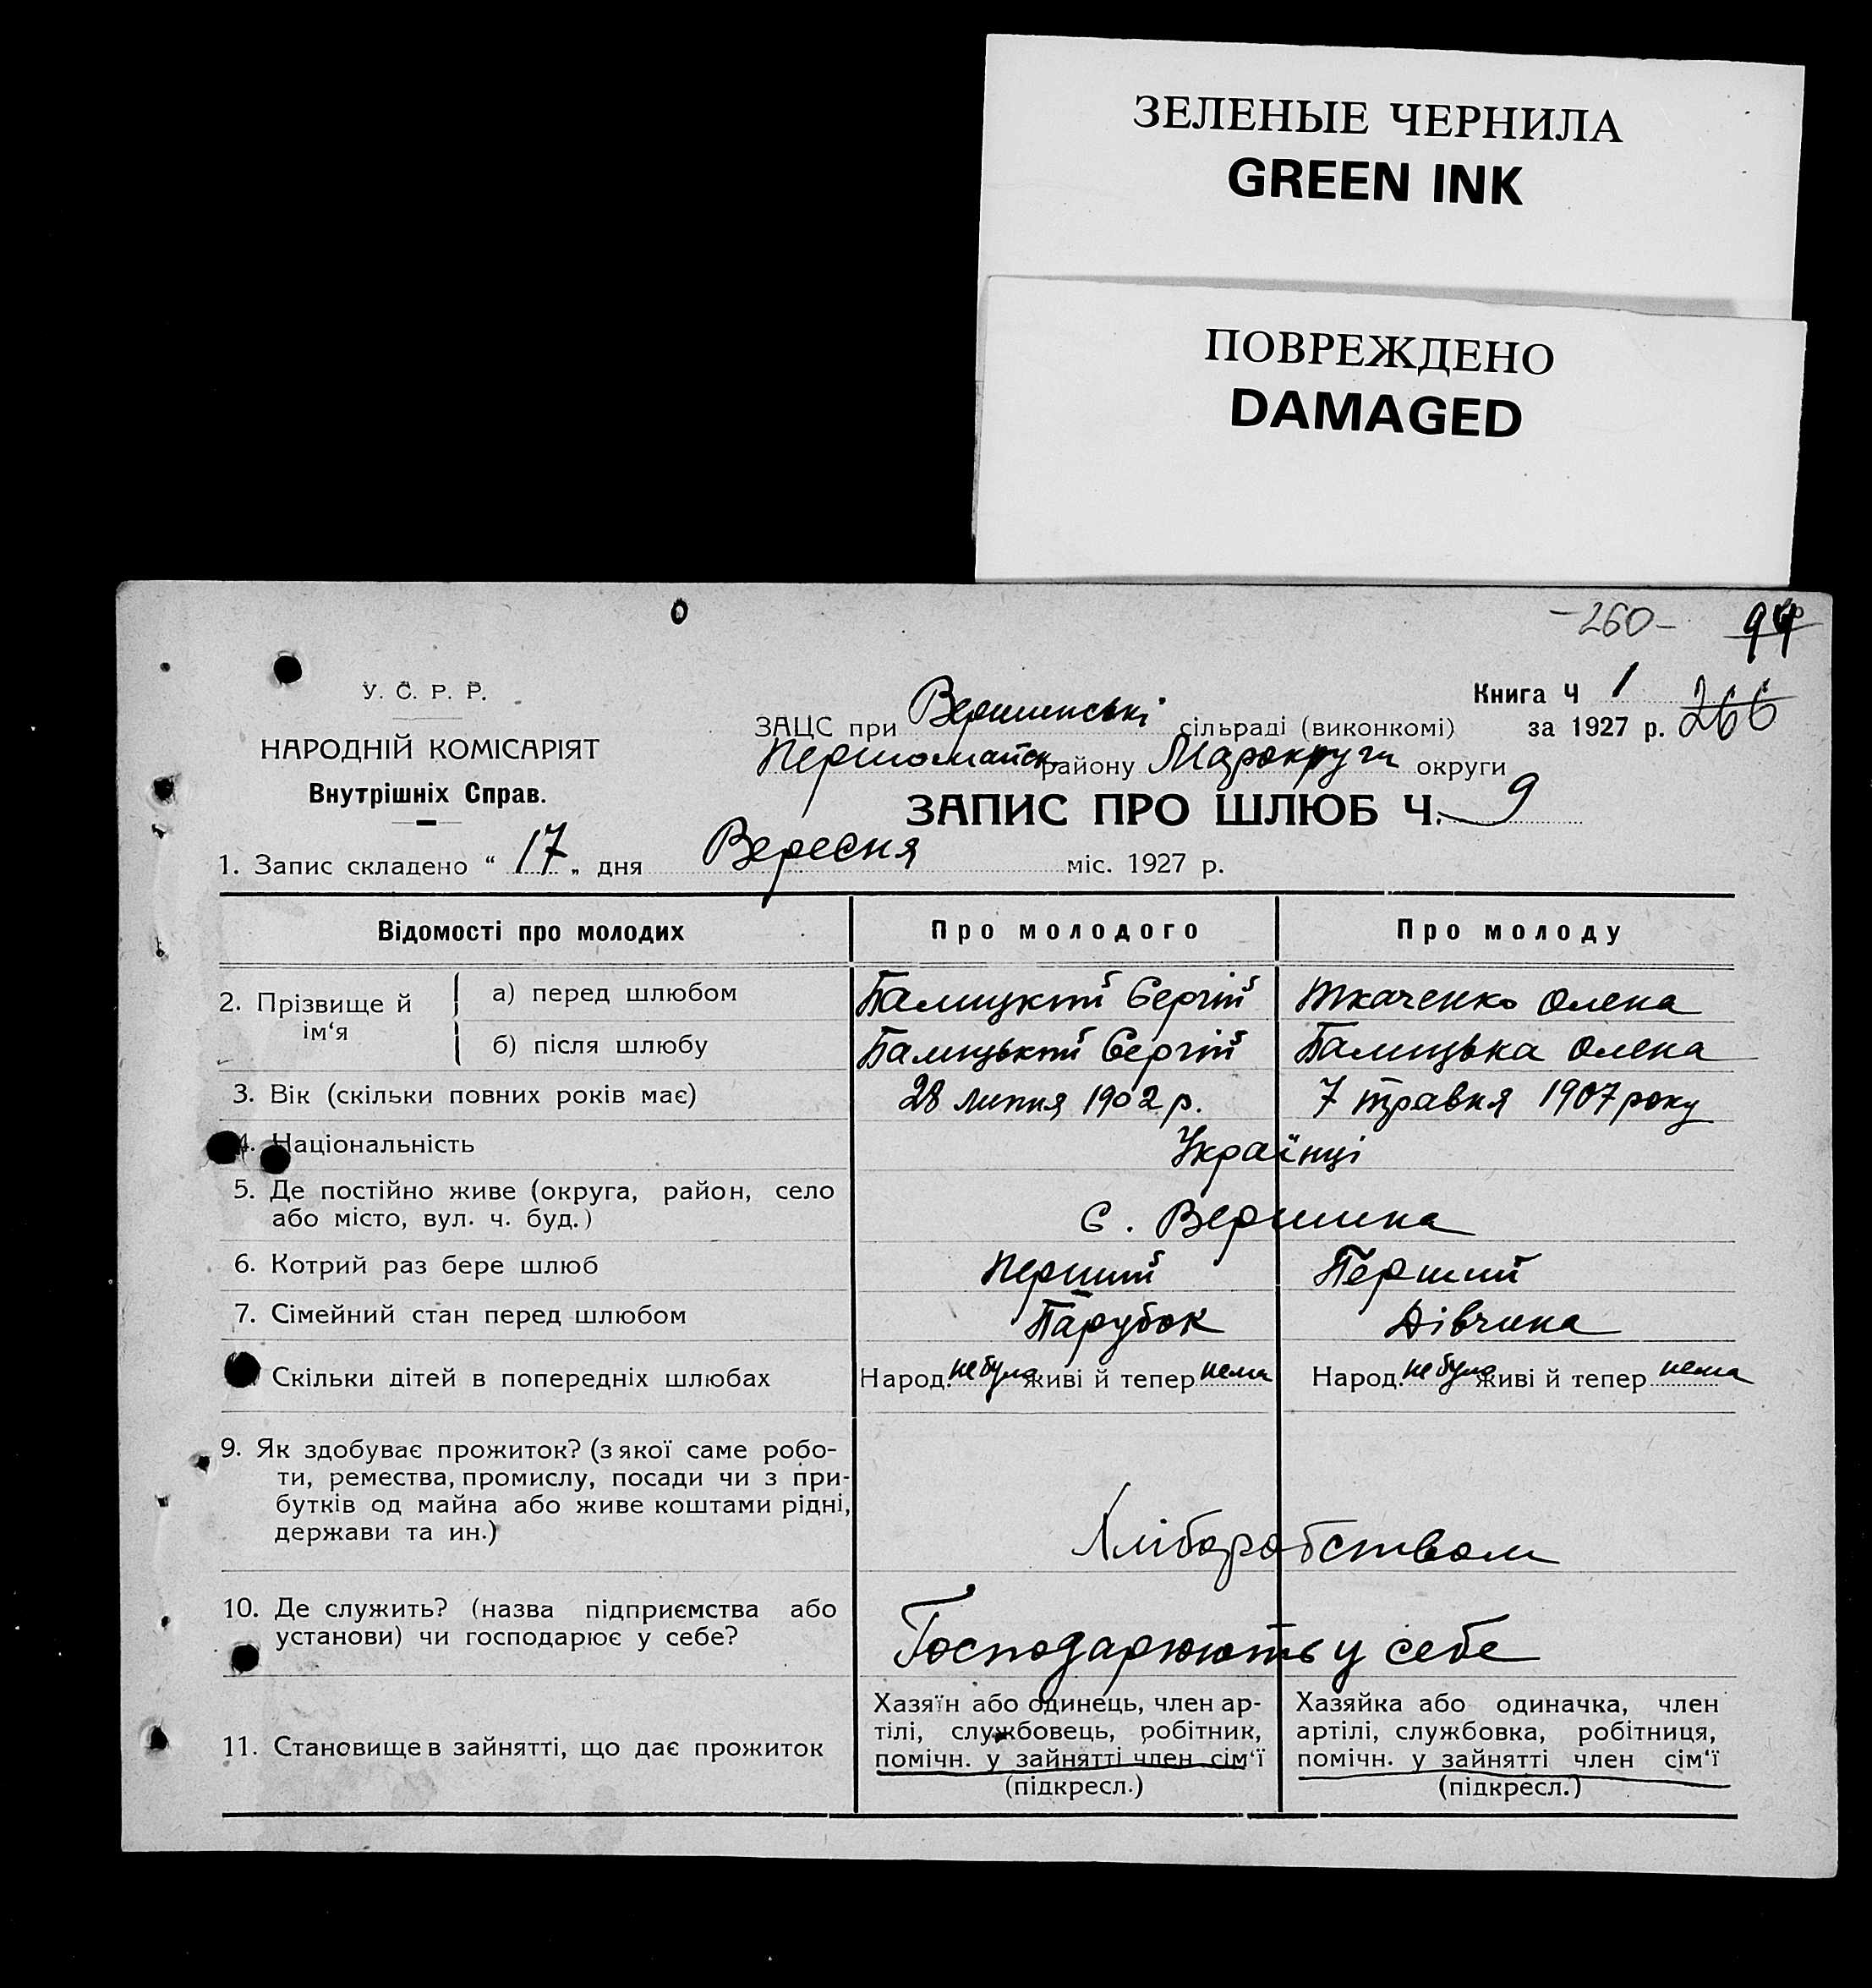 ЗЕЛЕНЫЕ ЧЕРНИЛА
GREEN INK
ПОВРЕЖДЕНО
DAMAGED
-260-
У. С. Р. Р.
НАРОДНІЙ КОМІСАРІЯТ
Внутрішніх Справ.
Книга Ч 1
ЗАЦС при Вершинські сільраді (виконкомі) за 1927 р. 266
Першомайск району Марокруги округи
ЗАПИС ПРО ШЛЮБ Ч. 9
1. Запис складено "17" дня Вересня міс. 1927 р.
Відомості про молодих Про молодого Про молоду
2. Прізвище й ім'я
а) перед шлюбом Балицкий Сергій Ткаченко Олена
б) після шлюбу Балицький Сергій Балицька Олена
3. Вік (скільки повних років має) 28 липня 1902 р. 7 травня 1907 року
4. Національність Українці
5. Де постійно живе (округа, район, село
або місто, вул. ч. буд.) с. Вершина
6. Котрий раз бере шлюб Перший Перший
7. Сімейний стан перед шлюбом Парубок Дівчина
Скільки дітей в попередніх шлюбах Народ. не було живі й тепер нема Народ. не було живі й тепер нема
9. Як здобуває прожиток? (з якої саме робо-
ти, ремества, промислу, посади чи з при-
бутків од майна або живе коштами рідні,
держави та ин.) Хліборобством
10. Де служить? (назва підприємства або
установи) чи господарює у себе? Господарюють у себе
11. Становище в зайнятті, що дає прожиток
Хазяїн або одинець, член ар-
тілі, службовець, робітник,
помічн. у зайнятті член сім'ї
(підкресл.)
Хазяйка або одиначка, член
артілі, службовка, робітниця,
помічн. у зайнятті член сім'ї
(підкресл.)